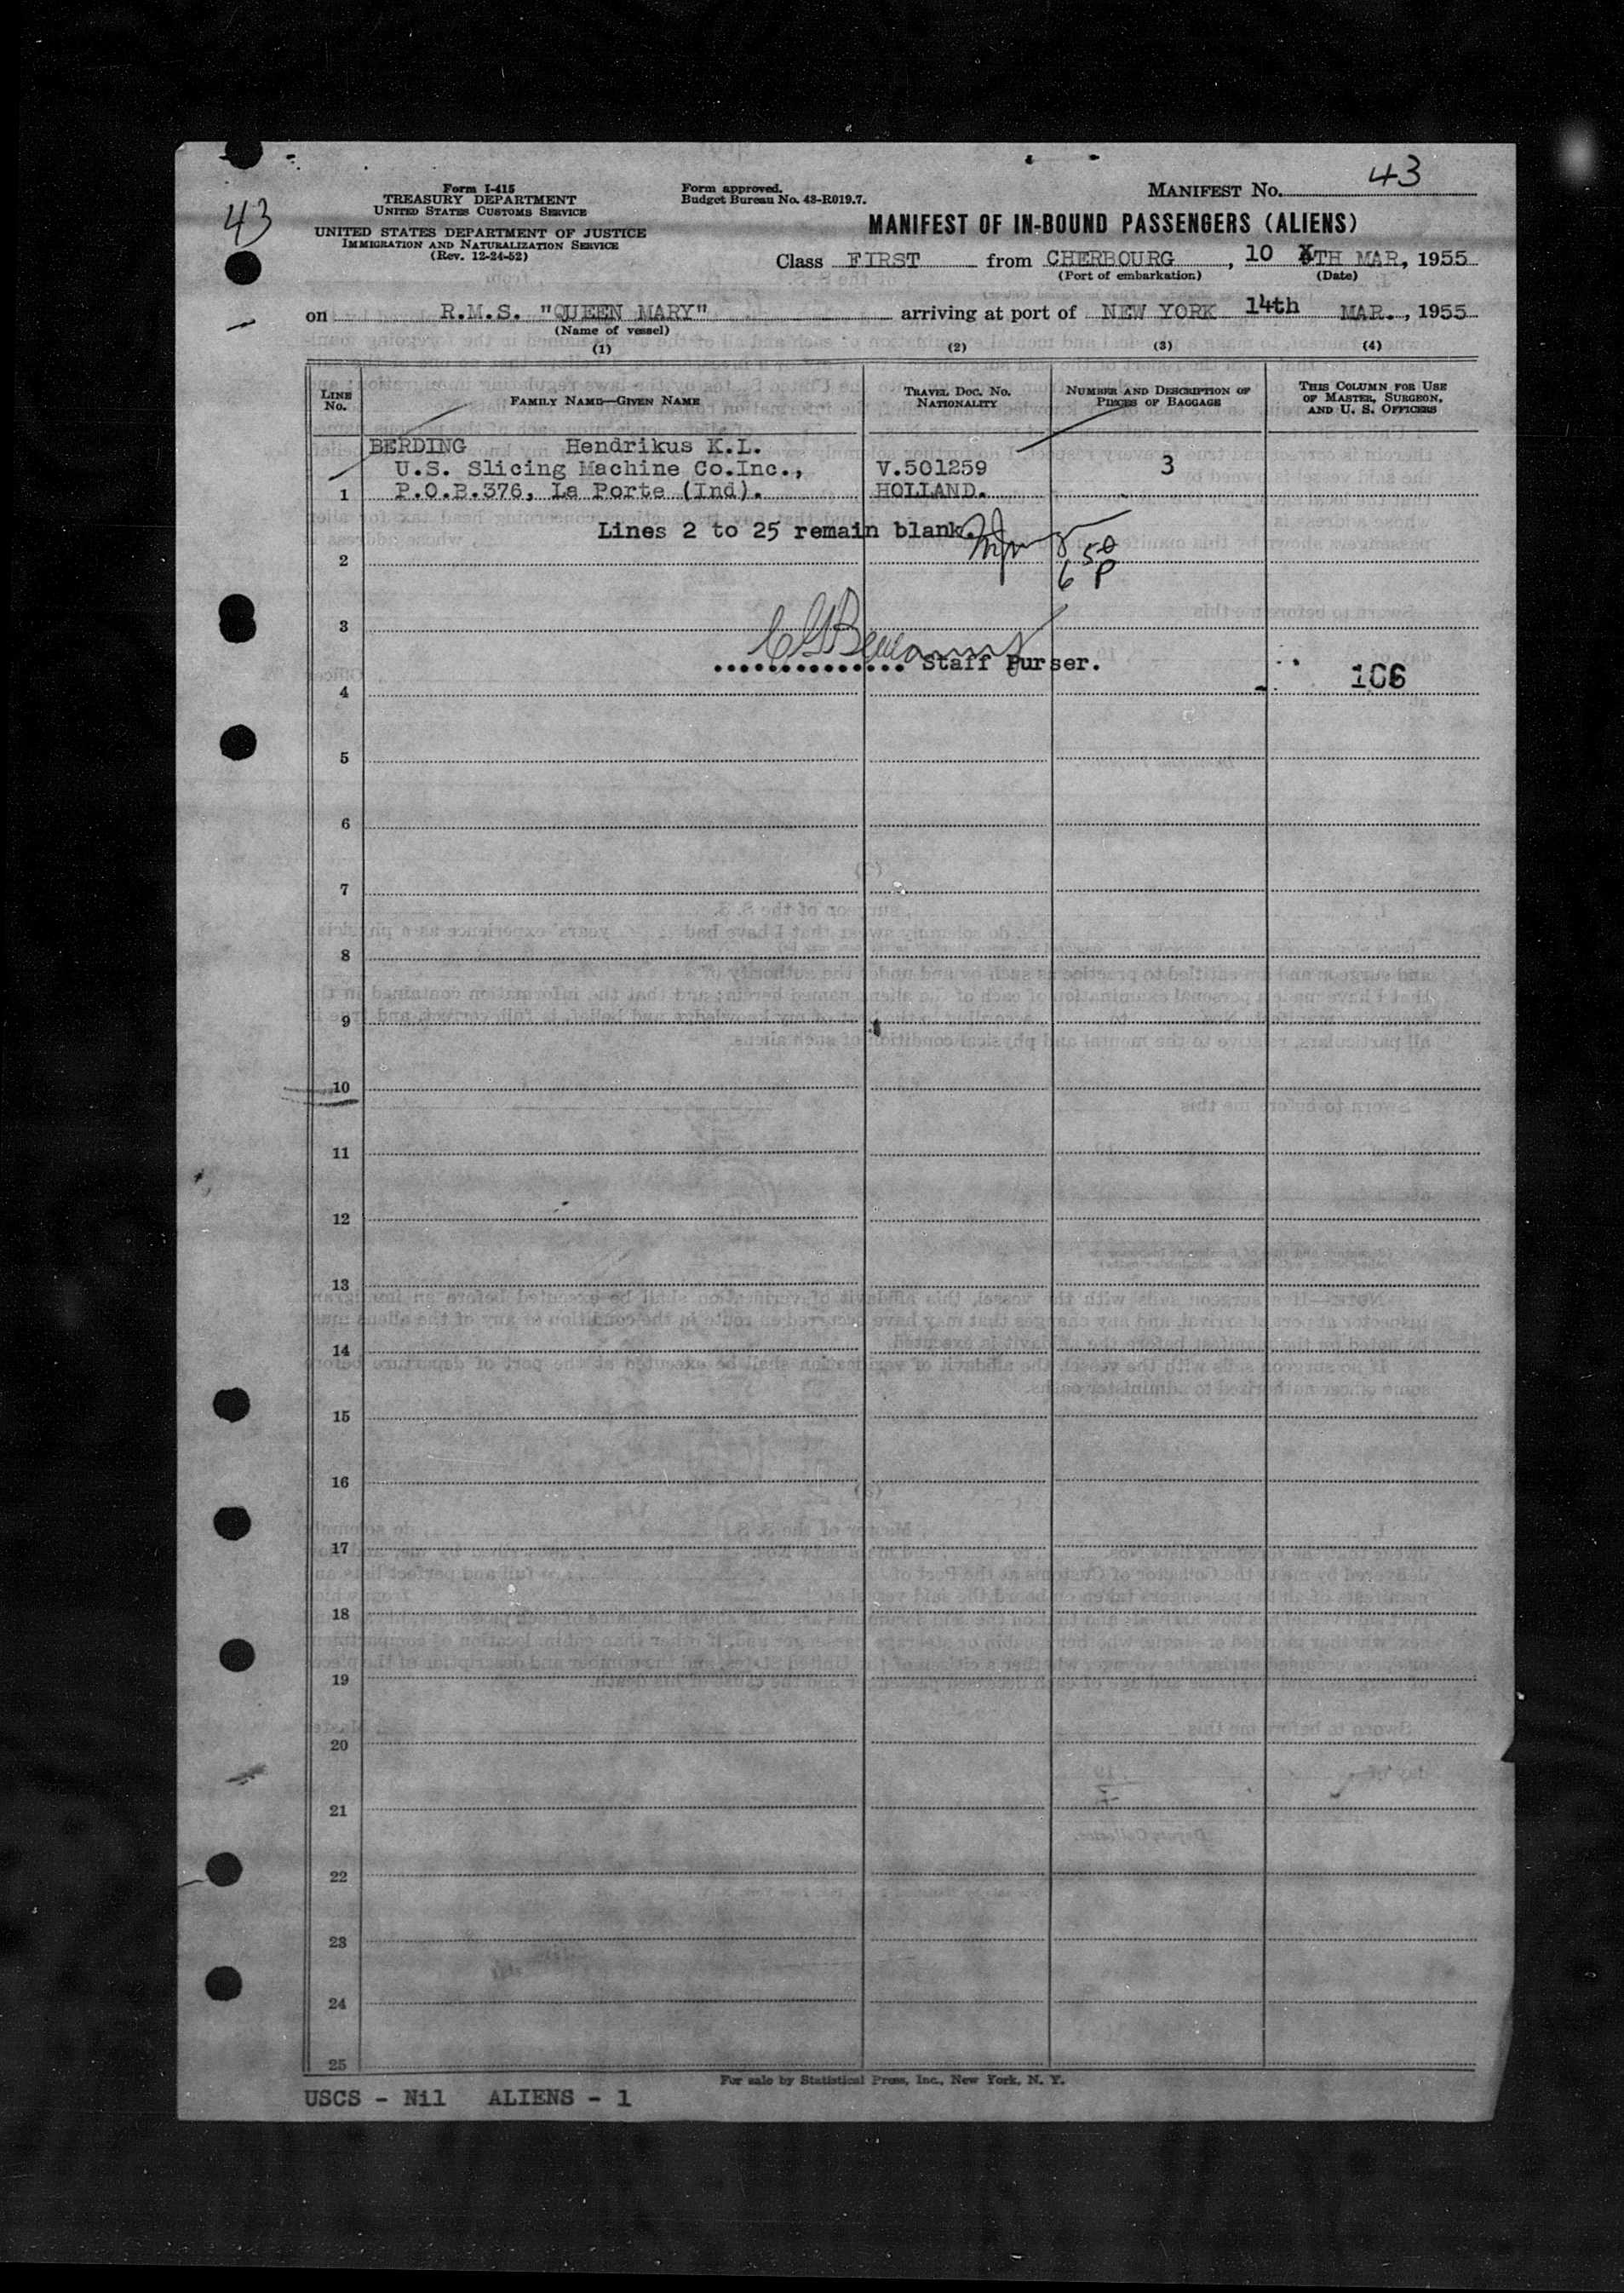 43
Form I-415
TREASURY DEPARTMENT
UNITED STATES CUSTOMS SERVICE
UNITED STATES DEPARTMENT OF JUSTICE
IMMIGRATION AND NATURALIZATION SERVICE
(Rev. 12-24-52)
Form approved.
Budget Bureau No. 43-R019.7.
MANIFEST No. 43
MANIFEST OF IN-BOUND PASSENGERS (ALIENS)
Class FIRST from CHERBOURG, 10 TH MAR, 1955
(Port of embarkation) (Date)
on R.M.S. "QUEEN MARY" arriving at port of NEW YORK 14th MAR., 1955
(Name of vessel)
(1) (2) (3) (4)
LINE No. FAMILY NAME—GIVEN NAME TRAVEL DOC. NO. NATIONALITY NUMBER AND DESCRIPTION OF PIECES OF BAGGAGE THIS COLUMN FOR USE OF MASTER, SURGEON, AND U. S. OFFICERS
BERDING Hendrikus K.L.
U.S. Slicing Machine Co.Inc., V.501259 3
1 P.O.B.376, La Porte (Ind). HOLLAND.
Lines 2 to 25 remain blank.
2
50
6 P
3
Staff Purser.
106
4
5
6
7
8
9
10
11
12
13
14
15
16
17
18
19
20
21
22
23
24
25
For sale by Statistical Press, Inc., New York, N. Y.
USCS - Nil ALIENS - 1